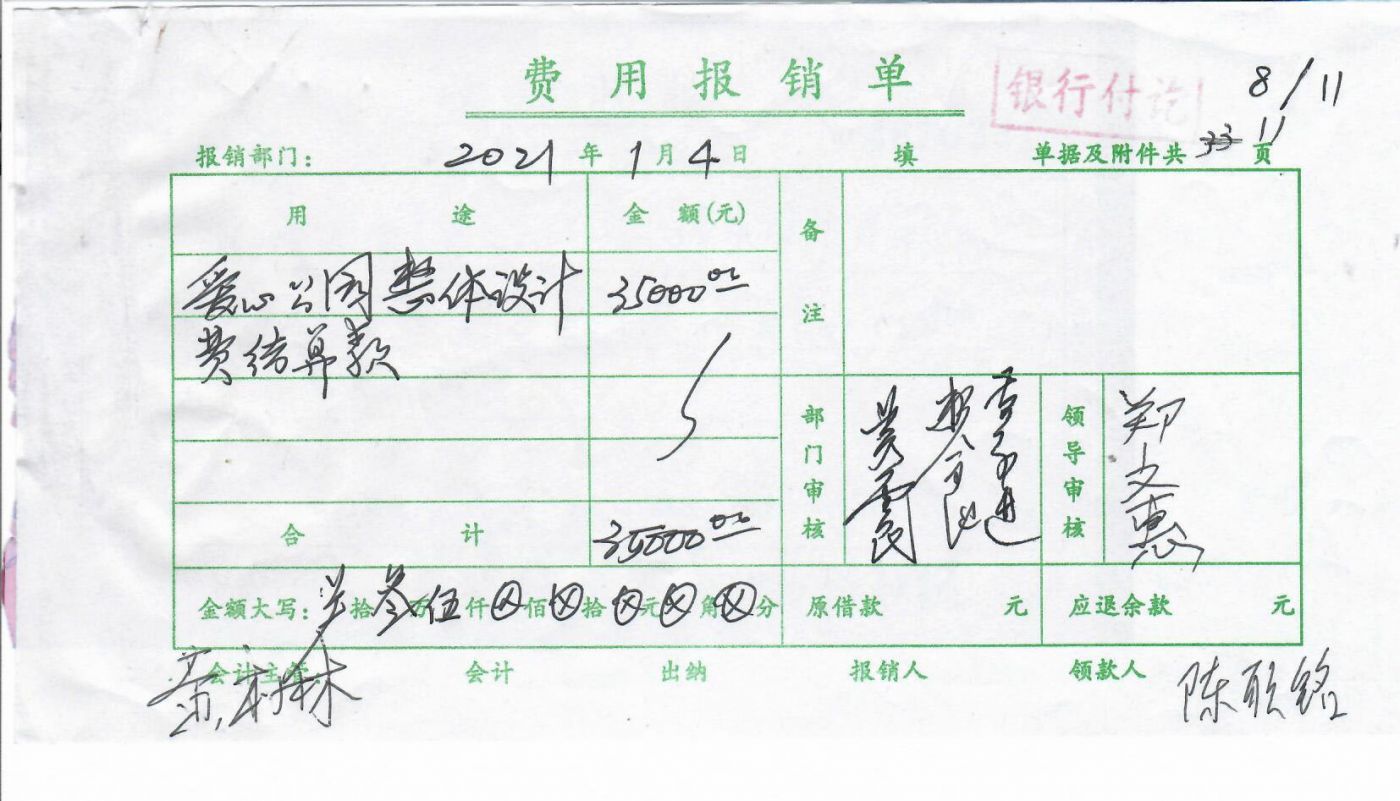 费用报销单
银行付讫
8/11
报销部门： 2021年1月4日 填 单据及附件共 33 11 页
用途 金额(元) 备注
爱心公园整体设计 35000 00
费结算款
部门审核 领导审核 郑文惠
合计 35000 00
金额大写： 拾叁万伍仟⊗佰⊗拾⊗元⊗角⊗分 原借款 元 应退余款 元
会计主管 会计 出纳 报销人 领款人 陈联铭